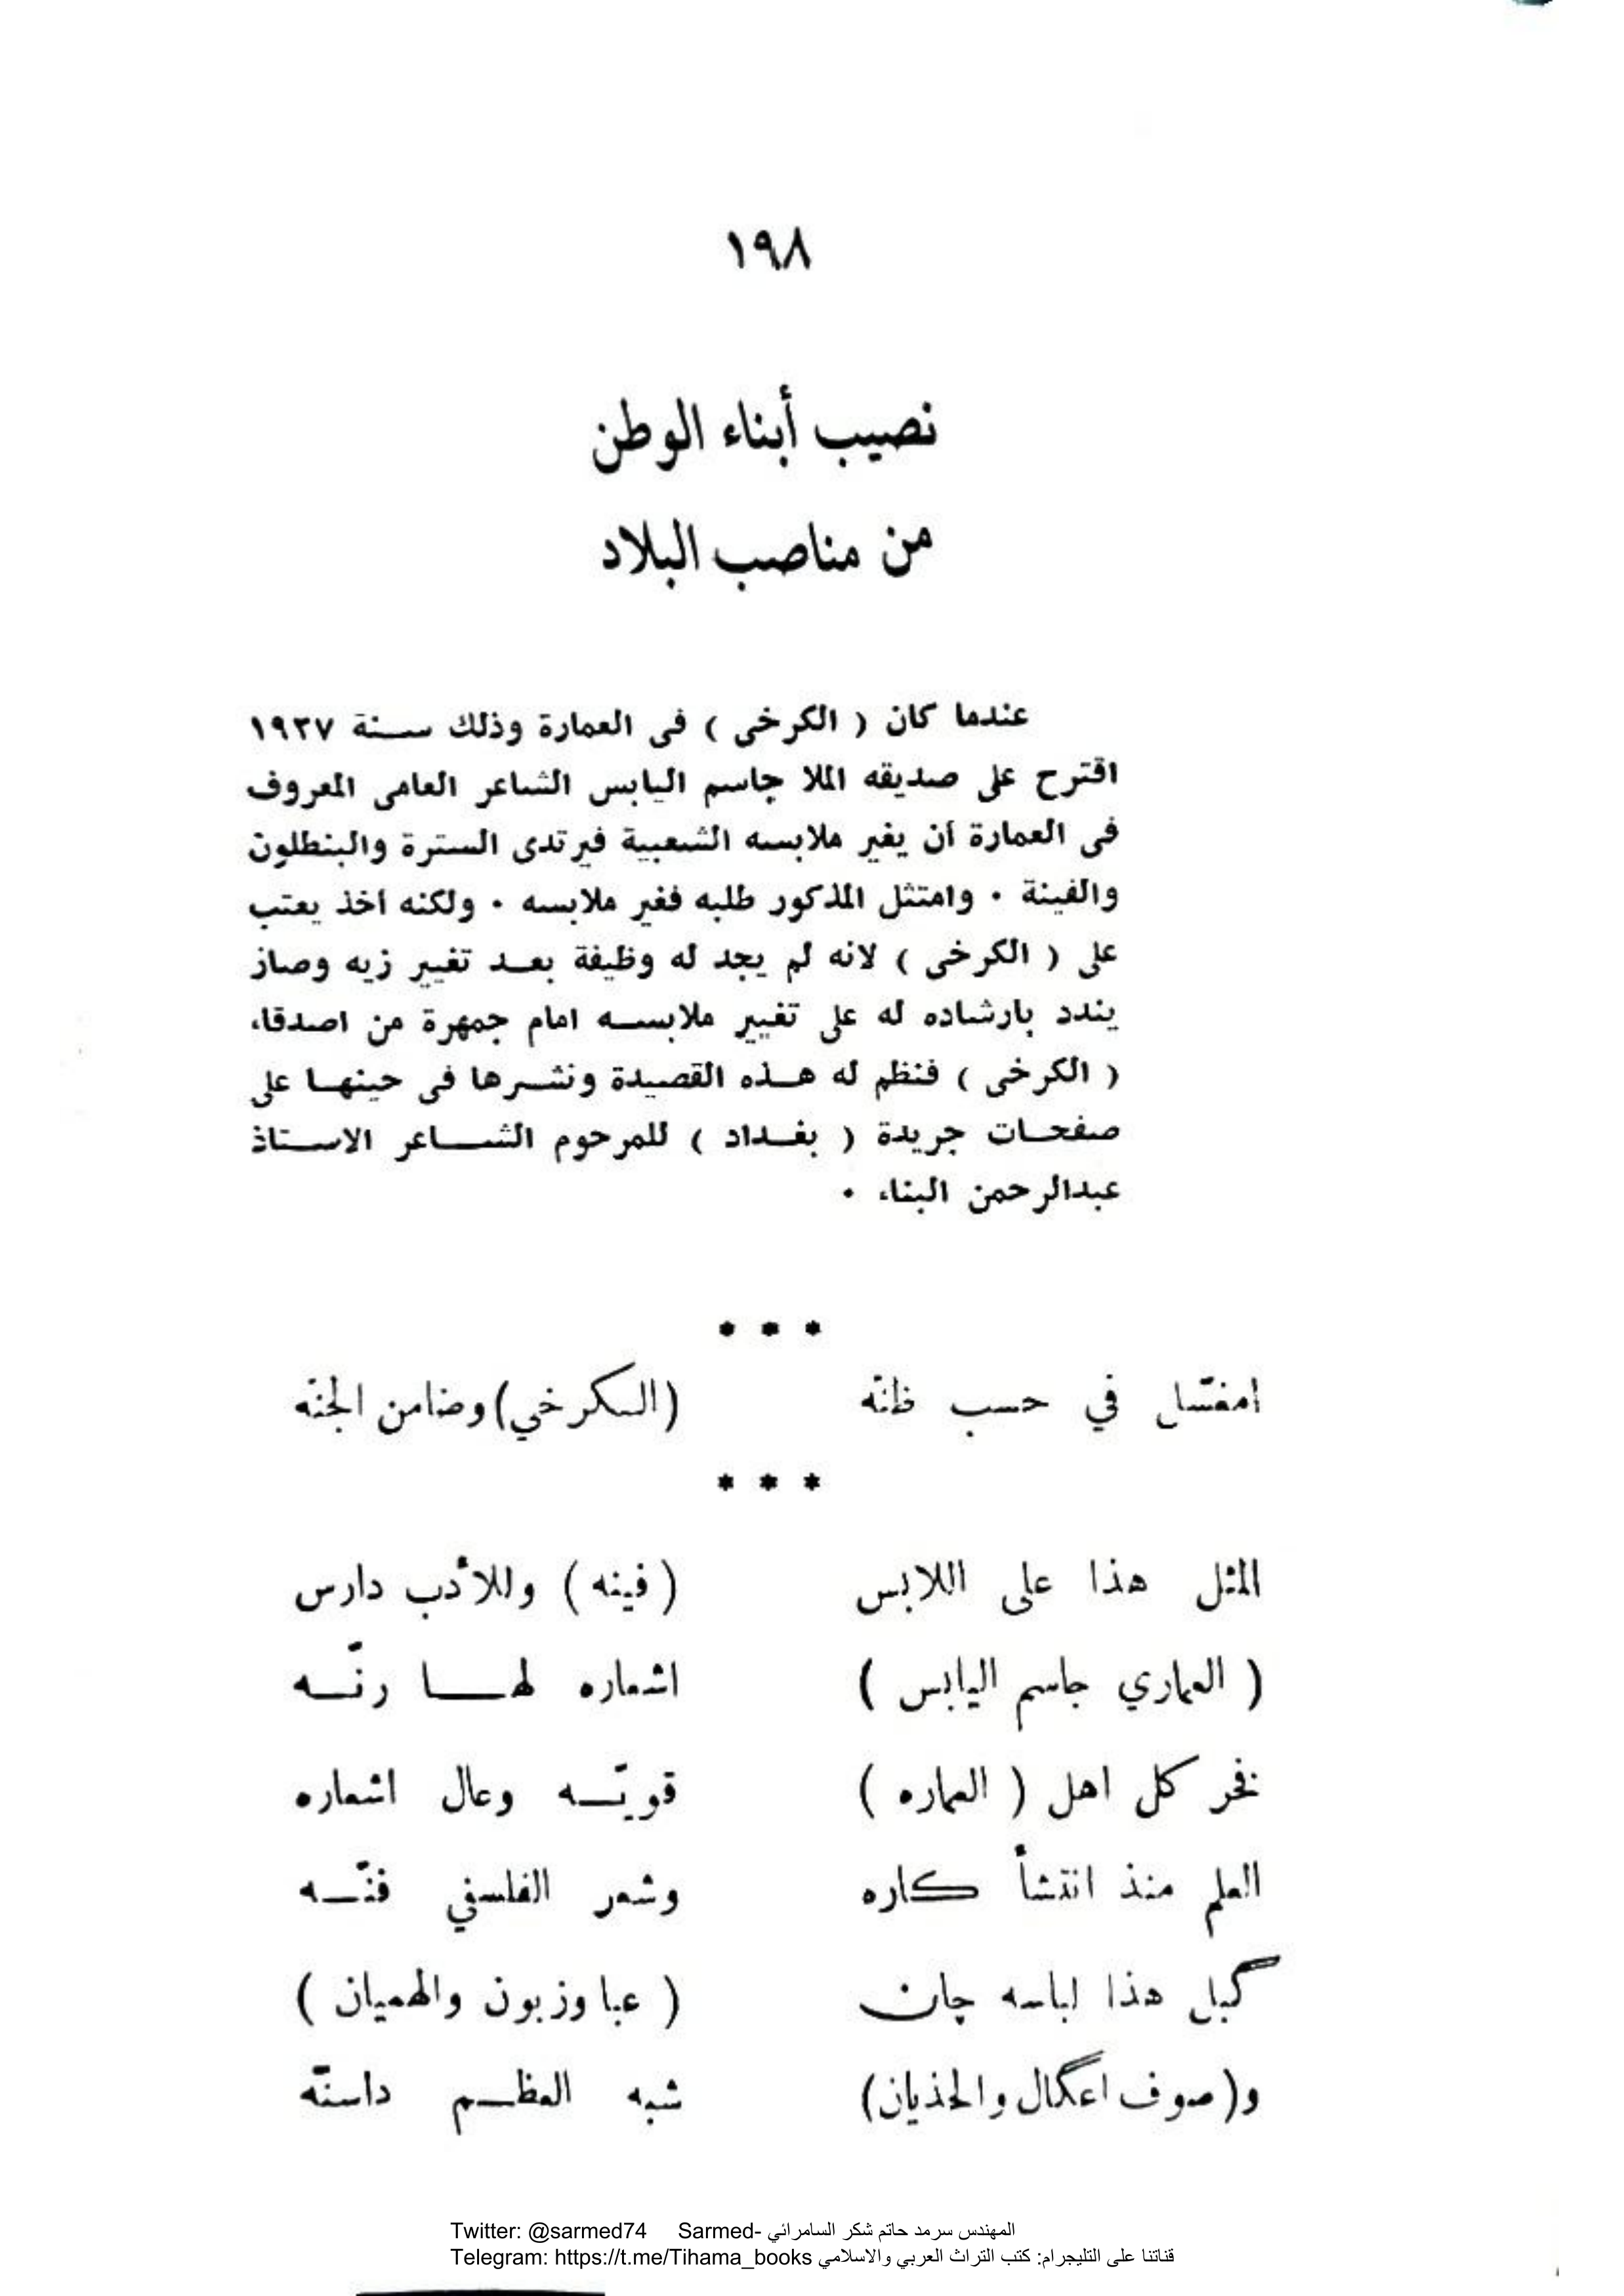 ١٩٨
نصيب أبناء الوطن
من مناصب البلاد
عندما كان ( الكرخى ) فى العمارة وذلك سنة ١٩٣٧
اقترح على صديقه الملا جاسم اليابس الشاعر العامى المعروف
فى العمارة أن يغير ملابسه الشعبية فيرتدى السترة والبنطلون
والفينة ٠ وامتثل المذكور طلبه فغير ملابسه ٠ ولكنه أخذ يعتب
على ( الكرخى ) لانه لم يجد له وظيفة بعد تغيير زيه وصار
يندد بارشاده له على تغيير ملابسه امام جمهرة من اصدقاء
( الكرخى ) فنظم له هذه القصيدة ونشرها فى حينها على
صفحات جريدة ( بغداد ) للمرحوم الشاعر الاستاذ
عبدالرحمن البناء ٠
* * *
امغسّل في حسب ظنّه (الكرخي) وضامن الجنّه
* * *
المثل هذا على اللابس ( فينه ) وللأدب دارس
( العماري جاسم اليابس ) اشعاره لها رنّه
فخر كل اهل ( العماره ) قويّه وعال اشعاره
العلم منذ انتشأ كاره وشعر الفلسفي فنّه
گبل هذا لباسه چان ( عبا وزبون والهميان )
و(صوف اعگال والحذيان) شبه العظم داسنّه
Twitter: @sarmed74 Sarmed- المهندس سرمد حاتم شكر السامرائي
Telegram: https://t.me/Tihama_books قناتنا على التليجرام: كتب التراث العربي والاسلامي